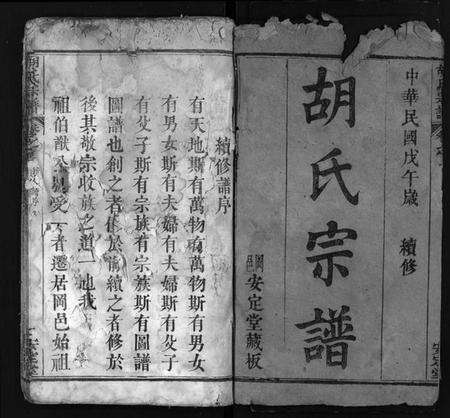 中華民國戊午歲 續修
胡氏宗譜
岡邑 安定堂藏板
續修譜序
有天地斯有萬物有萬物斯有男女
有男女斯有夫婦有夫婦斯有父子
有父子斯有宗族有宗族斯有圖譜
圖譜也創之者作於前續之者修於
後其敬宗收族之道一也我
祖伯猷公受一者遷居岡邑始祖